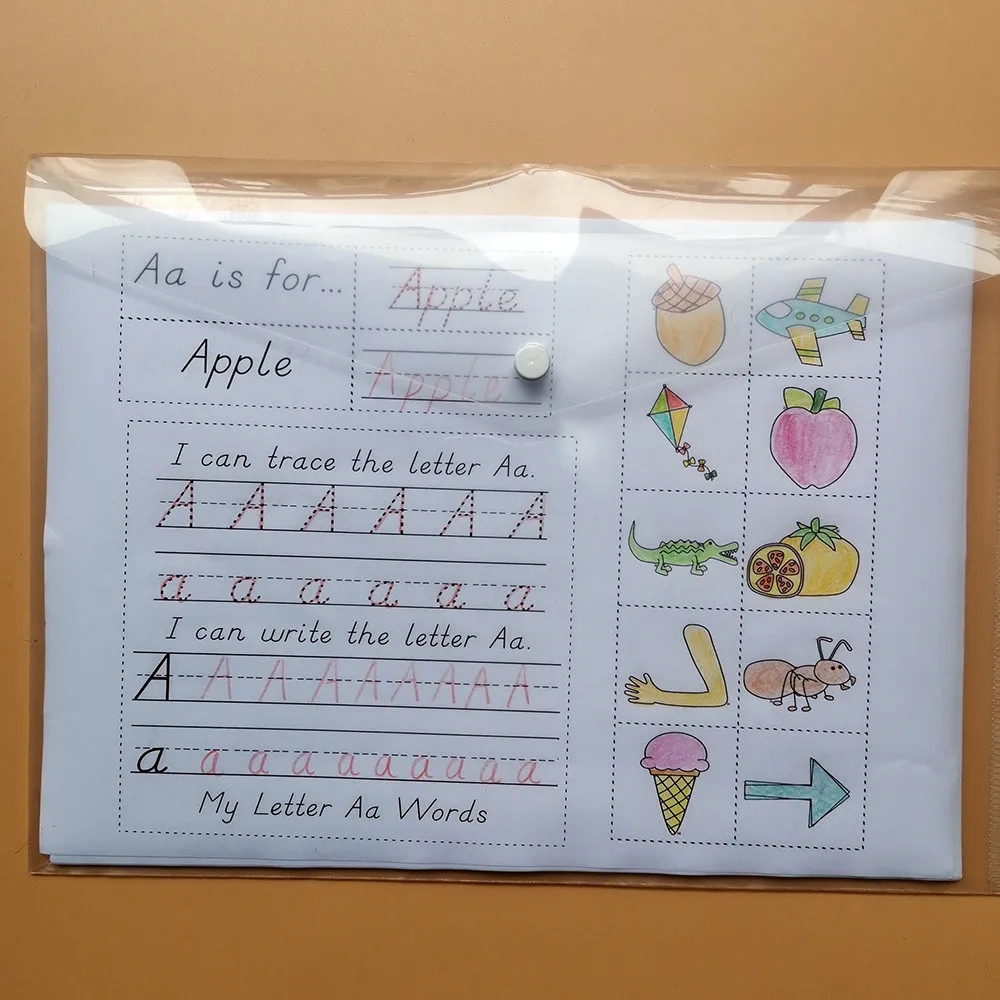 Aa is for...
Apple
Apple
Apple
I can trace the letter Aa.
A A A A A A
a a a a a a
I can write the letter Aa.
A A A A A A A A A
a a a a a a a a a
My Letter Aa Words